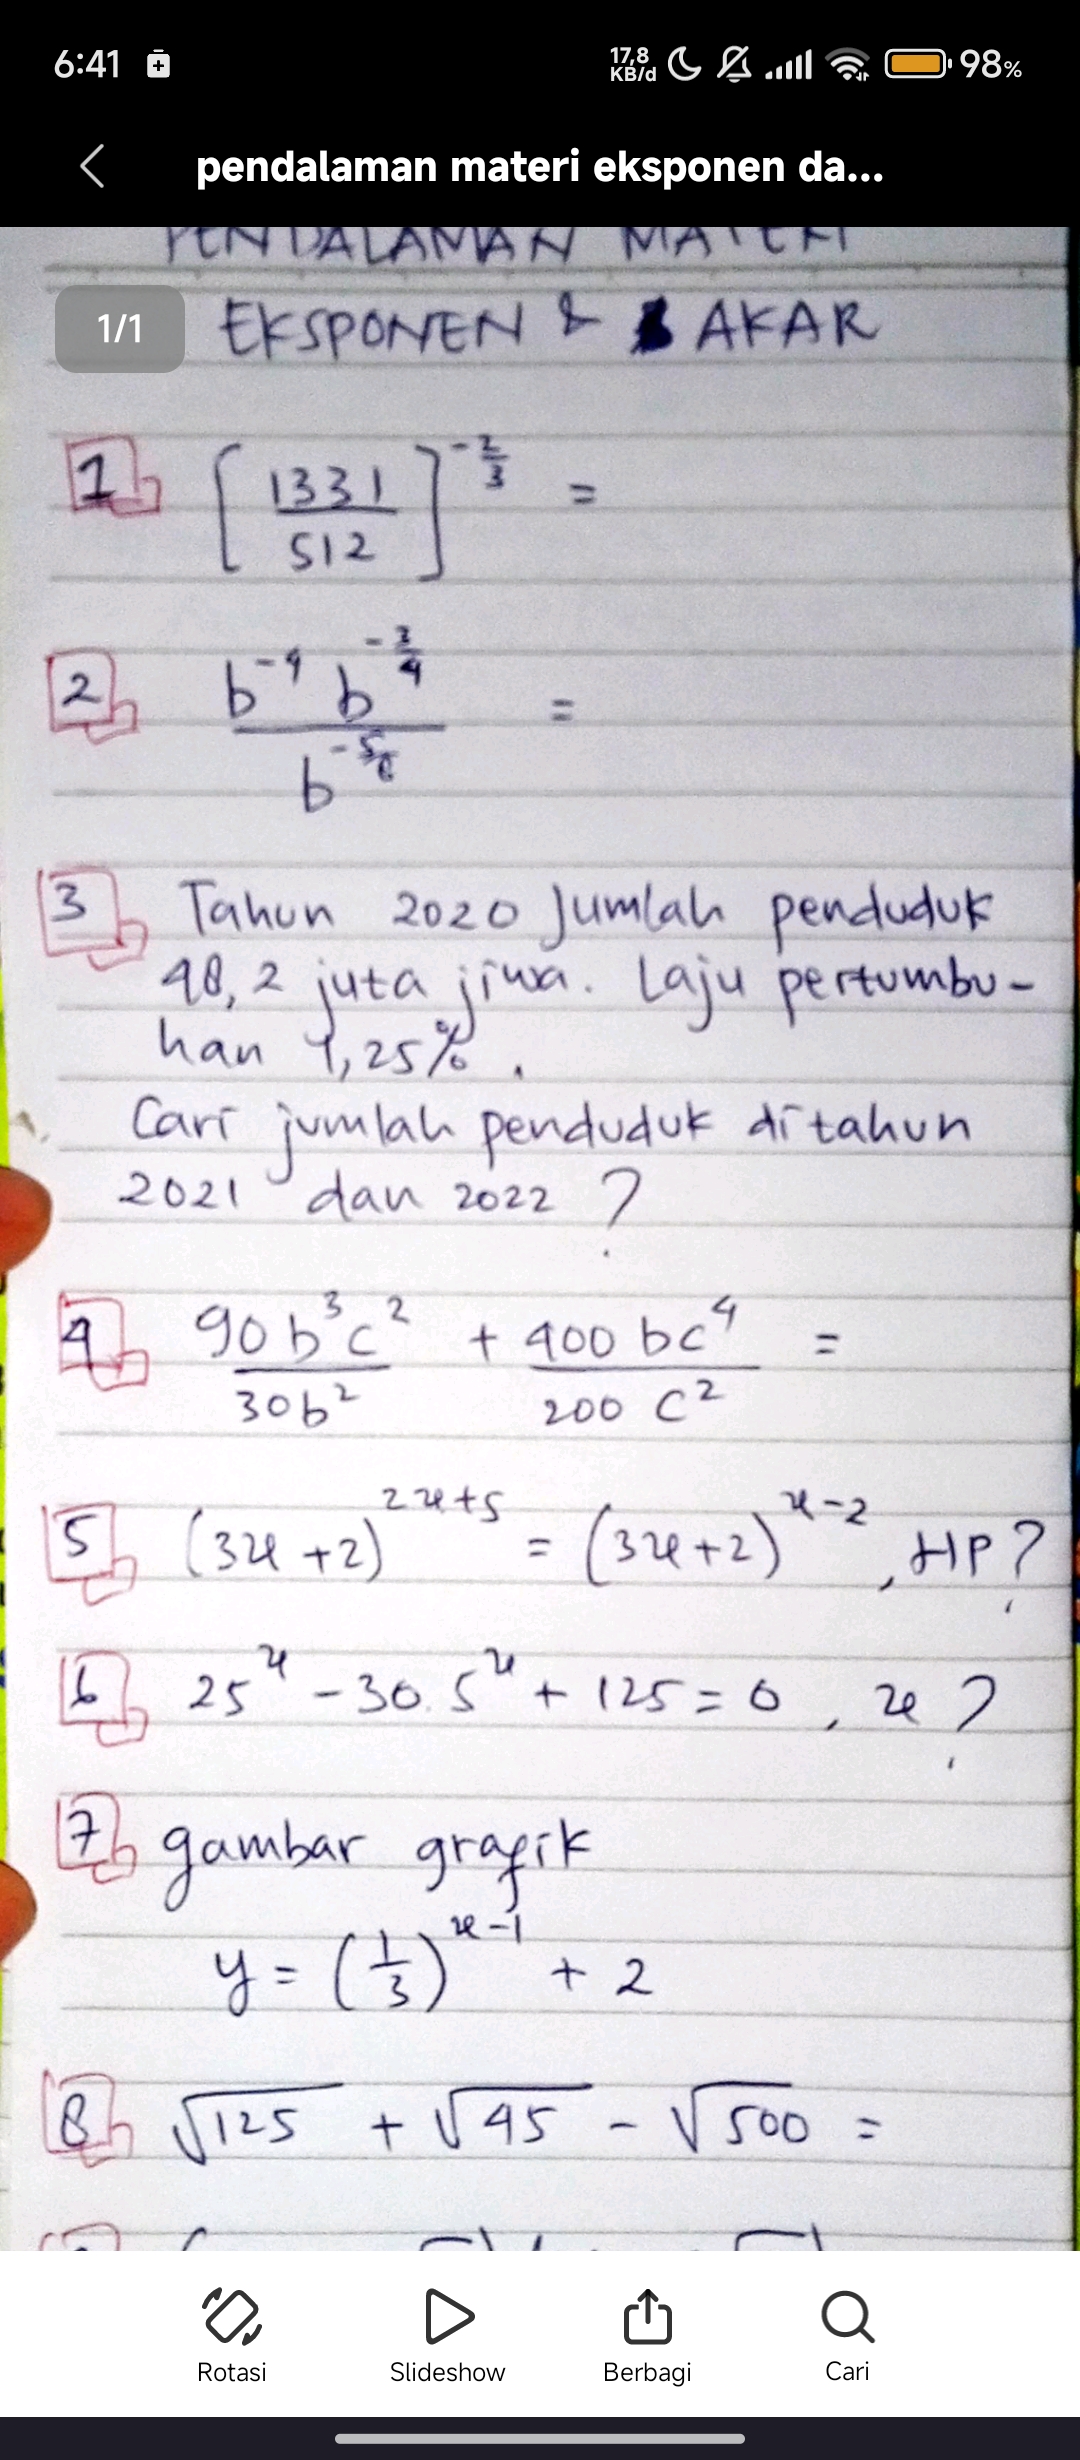 6:41
17,8 KB/d 98%
pendalaman materi eksponen da...
PENDALAMAN MATERI
1/1
EKSPONEN & AKAR
1 [1331/512]^(-2/3) =
2 (b^-4 b^(-3/4)) / b^(-5/8) =
3 Tahun 2020 Jumlah penduduk
48,2 juta jiwa. Laju pertumbu-
han 4,25%.
Cari jumlah penduduk ditahun
2021 dan 2022 ?
4 90b³c²/30b² + 400bc⁴/200c² =
5 (3x+2)^(2x+5) = (3x+2)^(x-2), HP?
6 25^x - 30.5^x + 125 = 0, x?
7 gambar grafik
y = (1/3)^(x-1) + 2
8 √125 + √45 - √500 =
Rotasi Slideshow Berbagi Cari